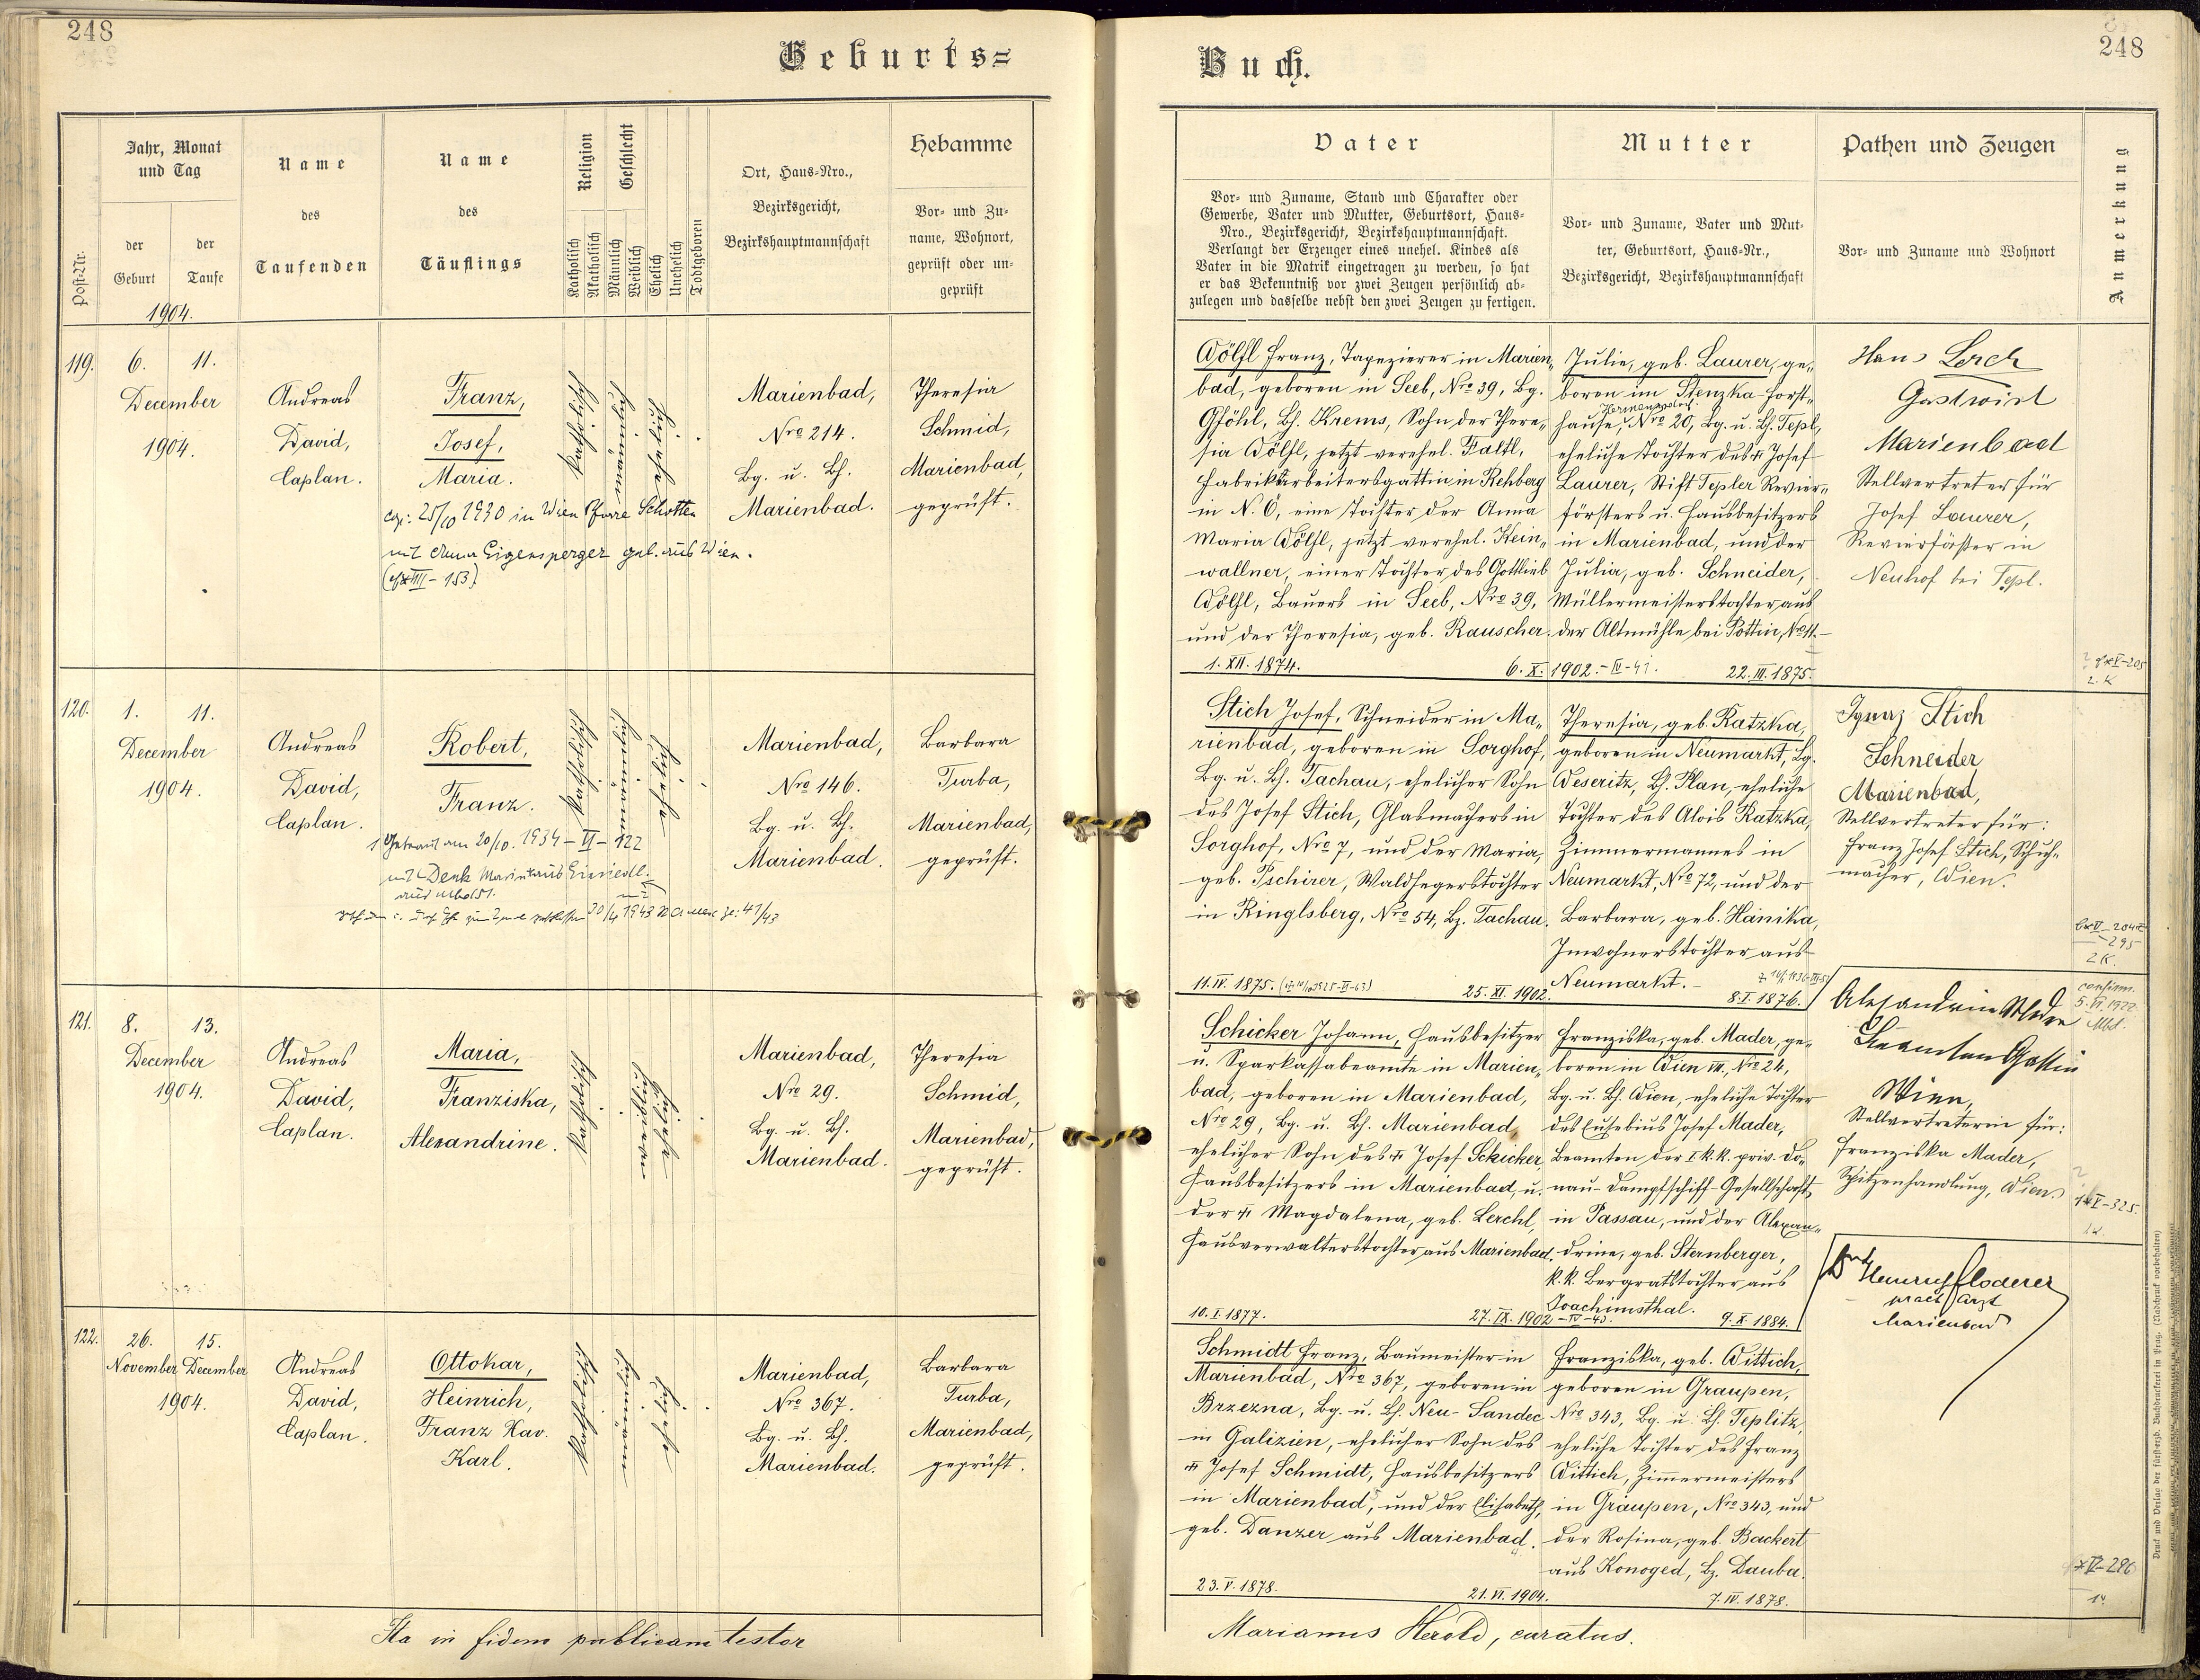 248
Geburts=
Jahr, Monat
und Tag
der
Geburt
der
Taufe
Post-Nr.
Name
des
Taufenden
Name
des
Täuflings
Religion
Katholisch
Akatholisch
Geschlecht
Männlich
Weiblich
Ehelich
Unehelich
Todtgeboren
Ort, Haus-Nro.,
Bezirksgericht,
Bezirkshauptmannschaft
Hebamme
Vor- und Zu-
name, Wohnort,
geprüft oder un-
geprüft
1904.
119.
6.
11.
December
1904.
Andreas
David,
Caplan.
Franz,
Josef,
Maria.
katholisch
männlich
ehelich
Marienbad,
Nro 214.
Bg. u. Bh.
Marienbad.
Theresia
Schmid,
Marienbad,
geprüft.
25/10 1930 in Wien Pfarre Schotten
mit Anna Eigensperger geb. aus Wien.
120.
1.
11.
December
1904.
Andreas
David,
Caplan.
Robert,
Franz.
katholisch
männlich
ehelich
Marienbad,
Nro 146.
Bg. u. Bh.
Marienbad.
Barbara
Turba,
Marienbad,
geprüft.
Getraut am 20/10. 1934 – VI – 122
mit Denk Marie aus Einsiedl.
121.
8.
13.
December
1904.
Andreas
David,
Caplan.
Maria,
Franziska,
Alexandrine.
katholisch
weiblich
ehelich
Marienbad,
Nro 29.
Bg. u. Bh.
Marienbad.
Theresia
Schmid,
Marienbad,
geprüft.
122.
26.
15.
November
December
1904.
Andreas
David,
Caplan.
Ottokar,
Heinrich,
Franz Xav.
Karl.
katholisch
männlich
ehelich
Marienbad,
Nro 367.
Bg. u. Bh.
Marienbad.
Barbara
Turba,
Marienbad,
geprüft.
Ita in fidem publicam testor
Buch.
248
Vater
Vor- und Zuname, Stand und Charakter oder
Gewerbe, Vater und Mutter, Geburtsort, Haus-
Nro., Bezirksgericht, Bezirkshauptmannschaft.
Verlangt der Erzeuger eines unehel. Kindes als
Vater in die Matrik eingetragen zu werden, so hat
er das Bekenntniß vor zwei Zeugen persönlich ab-
zulegen und dasselbe nebst den zwei Zeugen zu fertigen.
Mutter
Vor- und Zuname, Vater und Mut-
ter, Geburtsort, Haus-Nr.,
Bezirksgericht, Bezirkshauptmannschaft
Pathen und Zeugen
Vor- und Zuname und Wohnort
Anmerkung
Wölfl Franz, Tapezierer in Marien-
bad, geboren in Seeb, Nro 39, Bg.
Gföhl, Bh. Krems, Sohn der There-
sia Wölfl, jetzt verehel. Faltl,
Fabriksarbeitersgattin in Rehberg
in N. Ö, eine Tochter der Anna
Maria Wölfl, jetzt verehel. Kein-
wallner, einer Tochter des Gottlieb
Wölfl, Bauers in Seeb, Nro 39,
und der Theresia, geb. Rauscher.
1. XII. 1874.
6. X. 1902. – IV – 41.
Julie, geb. Laurer, ge-
boren im Stenzka-Forst-
hause, Nro 20, Bg. u. Bh. Tepl,
eheliche Tochter des Josef
Laurer, Stift Tepler Revier-
försters u. Hausbesitzers
in Marienbad, und der
Julia, geb. Schneider,
Müllermeisterstochter aus
der Altmühle bei Pottin, No 11.
22. III. 1875.
Hans Lerch
Gastwirt
Marienbad
Stellvertreter für
Josef Laurer,
Revierförster in
Neuhof bei Tepl.
Stich Josef, Schneider in Ma-
rienbad, geboren in Sorghof,
Bg. u. Bh. Tachau, ehelicher Sohn
des Josef Stich, Glasmachers in
Sorghof, Nro 7, und der Maria,
geb. Tschirer, Waldhegerstochter
in Ringlsberg, Nro 54, Bz. Tachau.
11. IV. 1875.
25. XI. 1902.
Theresia, geb. Ratzka,
geboren in Neumarkt, Bg.
Weseritz, Bh. Plan, eheliche
Tochter des Alois Ratzka,
Zimmermannes in
Neumarkt, Nro 72, und der
Barbara, geb. Hanika,
Inwohnerstochter aus
Neumarkt.
8. I. 1876.
Ignaz Stich
Schneider
Marienbad,
Stellvertreter für:
Franz Josef Stich, Schuh-
macher, Wien.
Schicker Johann, Hausbesitzer
u. Sparkassabeamte in Marien-
bad, geboren in Marienbad,
Nro 29, Bg. u. Bh. Marienbad,
ehelicher Sohn des Josef Schicker,
Hausbesitzers in Marienbad, u.
der Magdalena, geb. Lerchl,
Hausverwalterstochter aus Marienbad.
10. I. 1877.
27. IX. 1902
Franziska, geb. Mader, ge-
boren in Wien VII., Nro 24,
Bg. u. Bh. Wien, eheliche Tochter
des Eusebius Josef Mader,
Beamten der I. k. k. priv. Do-
nau-Dampfschiff-Gesellschaft,
in Passau, und der Alexan-
drine, geb. Sternberger,
k. k. Bergratstochter aus
Joachimsthal.
9. X. 1884.
Beamten Gattin
Wien,
Stellvertreterin für:
Franziska Mader,
Spitzenhandlung, Wien.
confirm.
Schmidt Franz, Baumeister in
Marienbad, Nro 367, geboren in
Brzezna, Bg. u. Bh. Neu-Sandec
in Galizien, ehelicher Sohn des
Josef Schmidt, Hausbesitzers
in Marienbad, und der Elisabeth,
geb. Danzer aus Marienbad.
23. V. 1878.
21. VI. 1904.
Franziska, geb. Wittich,
geboren in Graupen,
Nro 343, Bg. u. Bh. Teplitz,
eheliche Tochter des Franz
Wittich, Zimmermeisters
in Graupen, Nro 343, und
der Rosina, geb. Backert
aus Konoged, Bz. Dauba.
7. IV. 1878.
Dr Heinrich Floderer
pract Arzt
Marienbad
Marianus Herold, curatus.